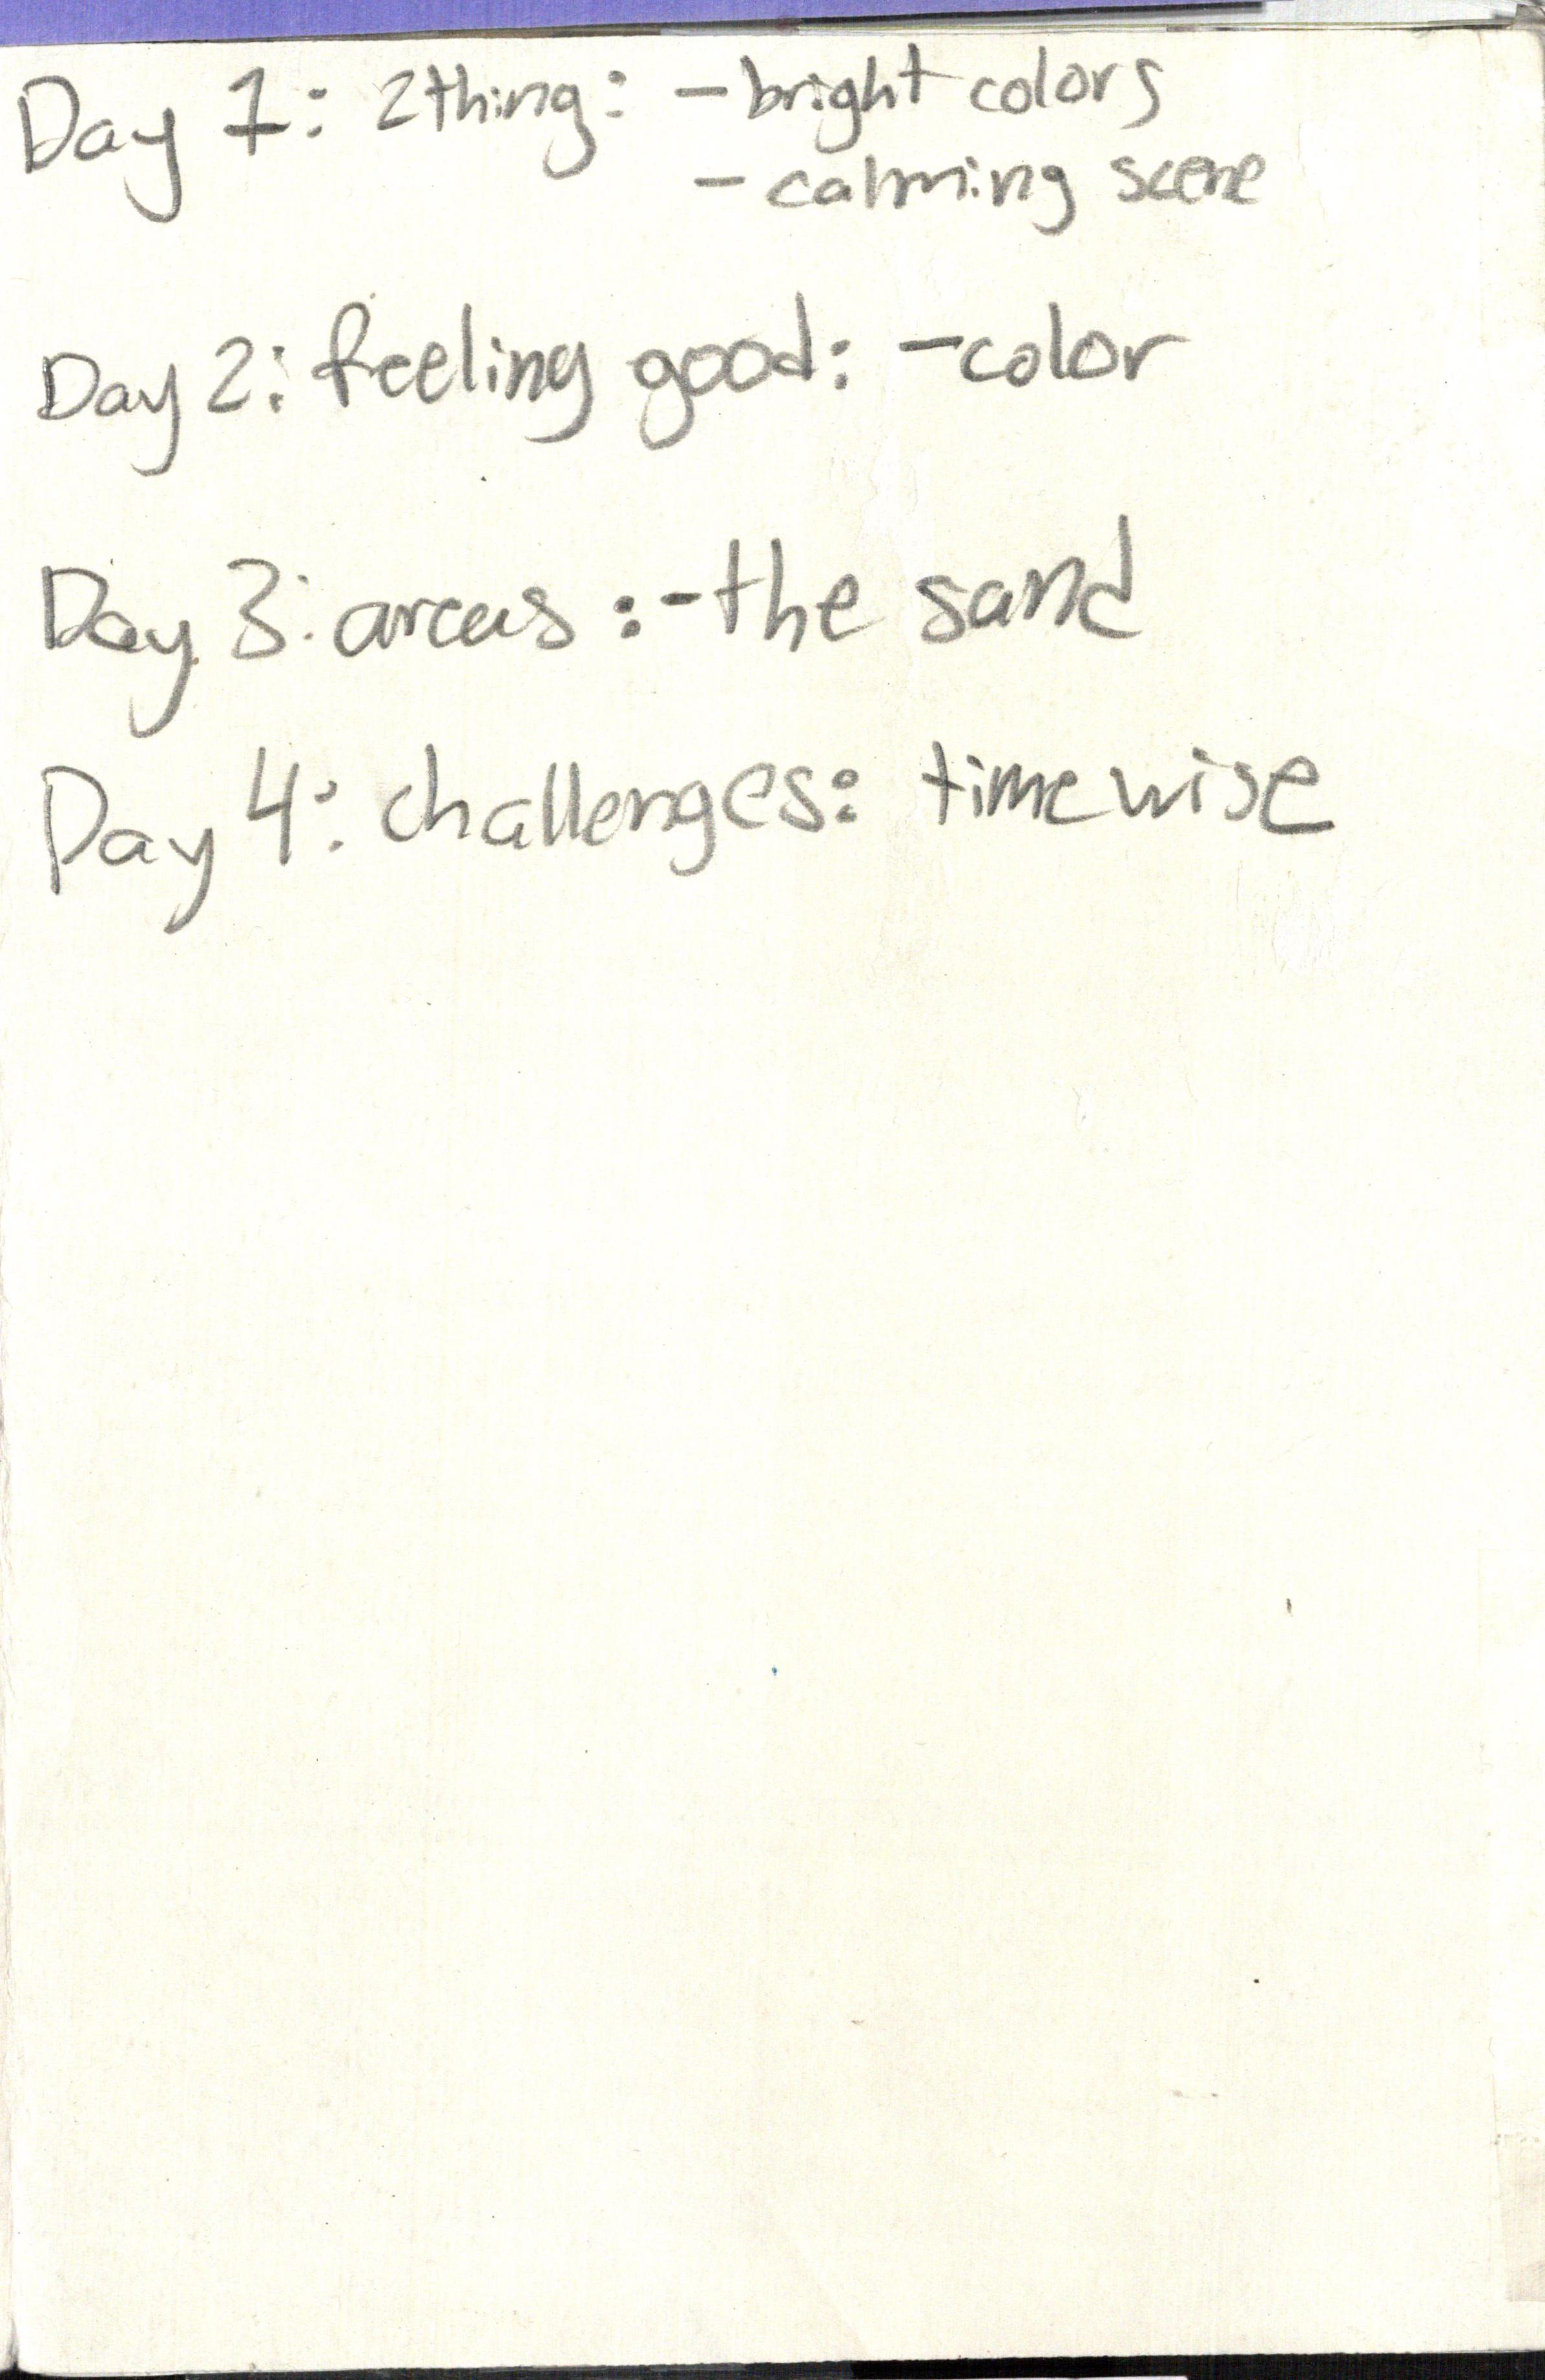 Day 1: 2thing: - bright colors
- calming scene
Day 2: feeling good: - color
Day 3: areas : - the sand
Day 4: challenges: timewise